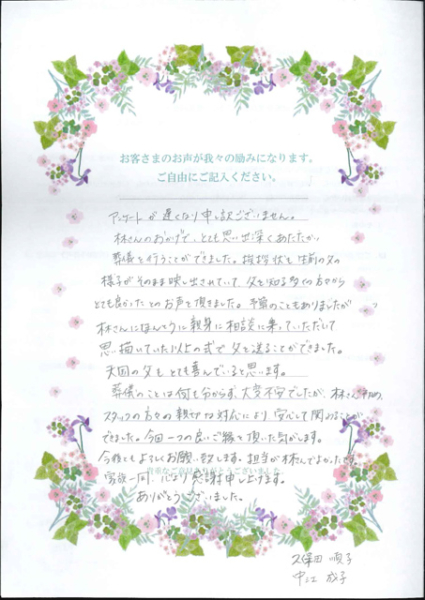 お客さまのお声が我々の励みになります。
ご自由にご記入ください。
アンケートが遅くなり申し訳ございません。
林さんのおかげで、とても思い出深くあたたかい
葬儀を行うことができました。挨拶状も生前の父の
様子がそのまま映し出されていて、父を知る多くの方々から
とても良かったとのお声を頂きました。予算のこともありましたが
林さんにほんとうに親身に相談に乗っていただいて
思い描いていた以上の式で父を送ることができました。
天国の父もとても喜んでいると思います。
葬儀のことは何も分からず、大変不安でしたが、林さん
スタッフの方々の親切な対応により、安心して
できました。今回一つの良いご縁を頂いた気がします。
今後ともよろしくお願い致します。担当が林さんでよかった
貴重なご意見ありがとうございました。
家族一同、心より感謝申し上げます。
ありがとうございました。
久保田 順子
中江 成子